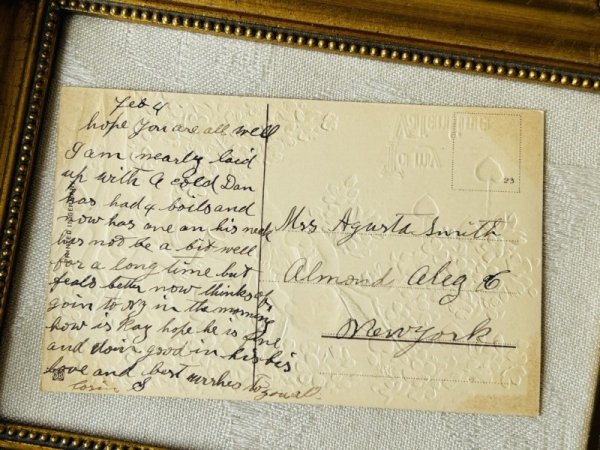 Feb 4
hope you are all well
I am nearly laid
up with a cold Dan
has had 4 boils and
now has one on his neck
has not be a bit well
for a long time but
feels better now thinks of
goin to NY in the morning
how is Ray hope he is fine
and doin good in his bis
love and best wishes to you all
S
Mrs Agusta Smith
Almond Aleg Co
New York
To my
Valentine
23